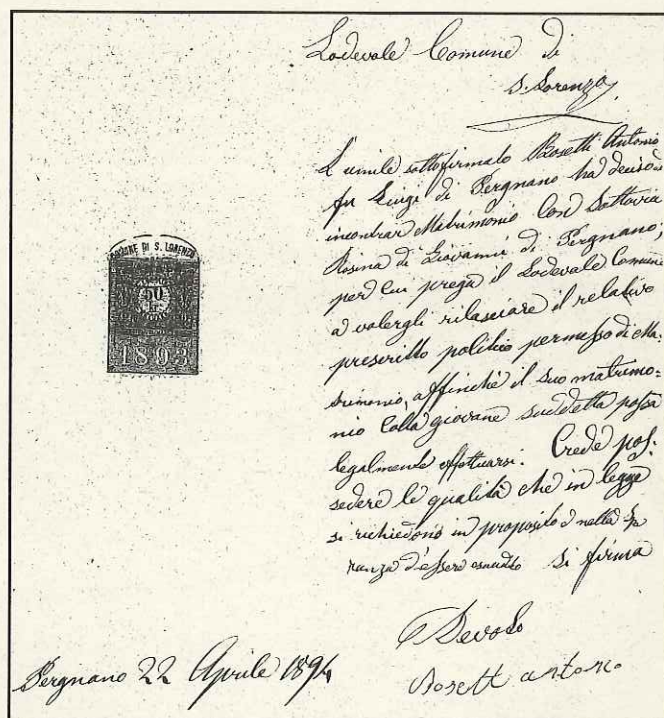 Lodevole Comune di
S. Lorenzo
L'umile sottofirmato Bosetti Antonio
fu Luigi di Pergnano ha deciso d
incontrar Matrimonio Con Sottovia
Rosina di Giovanni di Pergnano,
per cui prega il Lodevole Comune
a volergli rilasciare il relativo
prescritto politico permesso di Ma:
trimonio, affinchè il suo matrimo=
nio Colla giovane suddetta possa
legalmente effettuarsi. Crede pos:
sedere le qualità che in legge
si richiedono in proposito e nella Spe
ranza d'essere esaudito si firma
Devoto
Bosett antonio
Pergnano 22 Aprile 1894
COMUNE DI S. LORENZO
50
1893